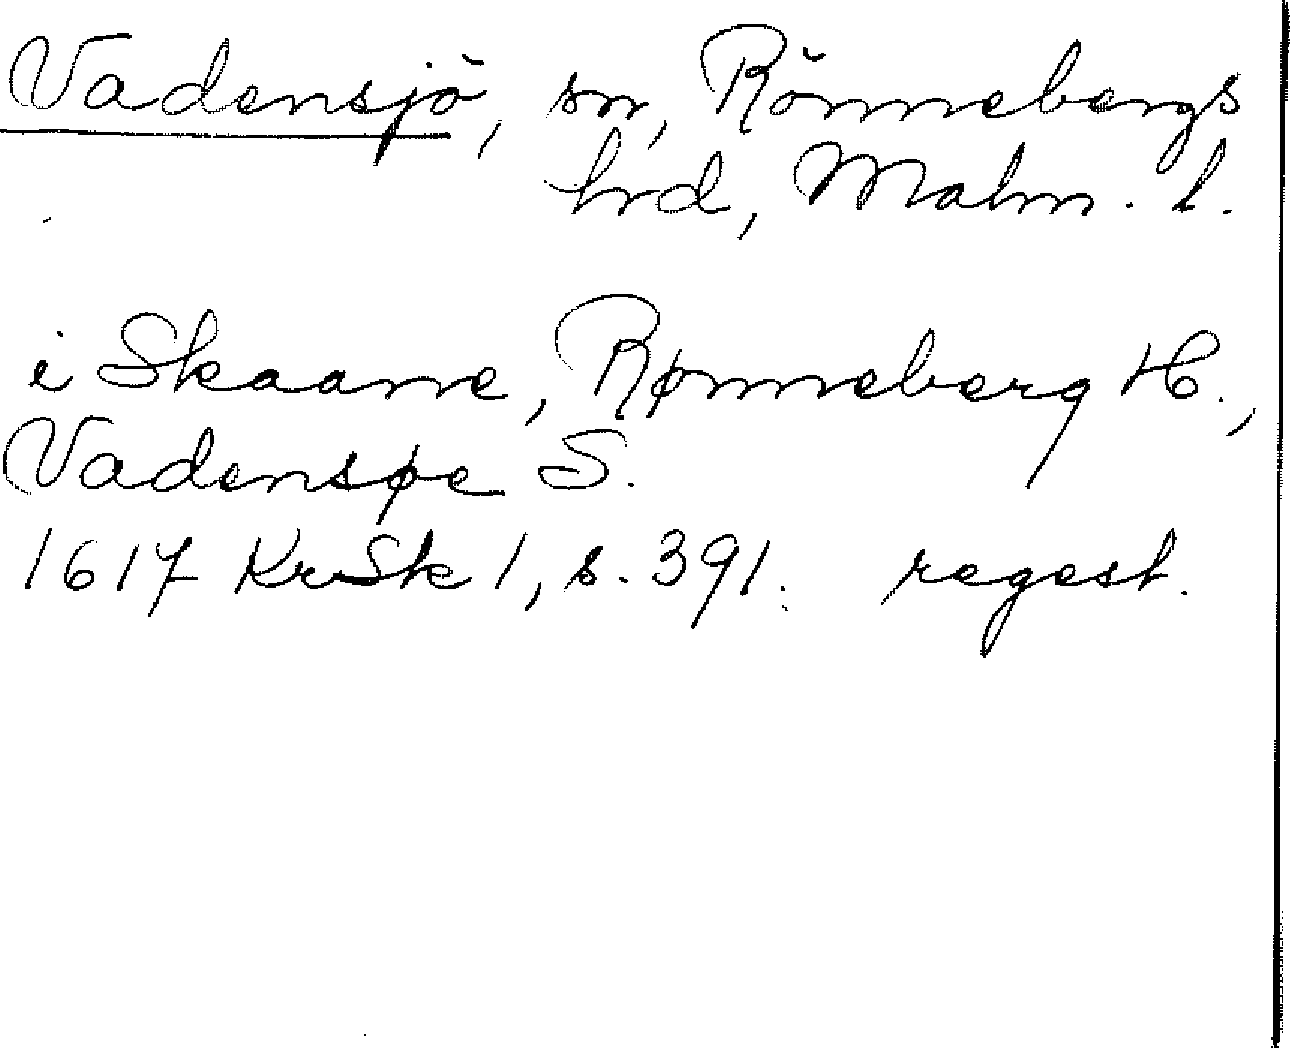 Vadensjö, sn, Rönnebergs
hrd, Malm. l.
i Skaane, Rønneberg H.,
Vadensøe S.
1617 KrSk 1, s. 391. regest.